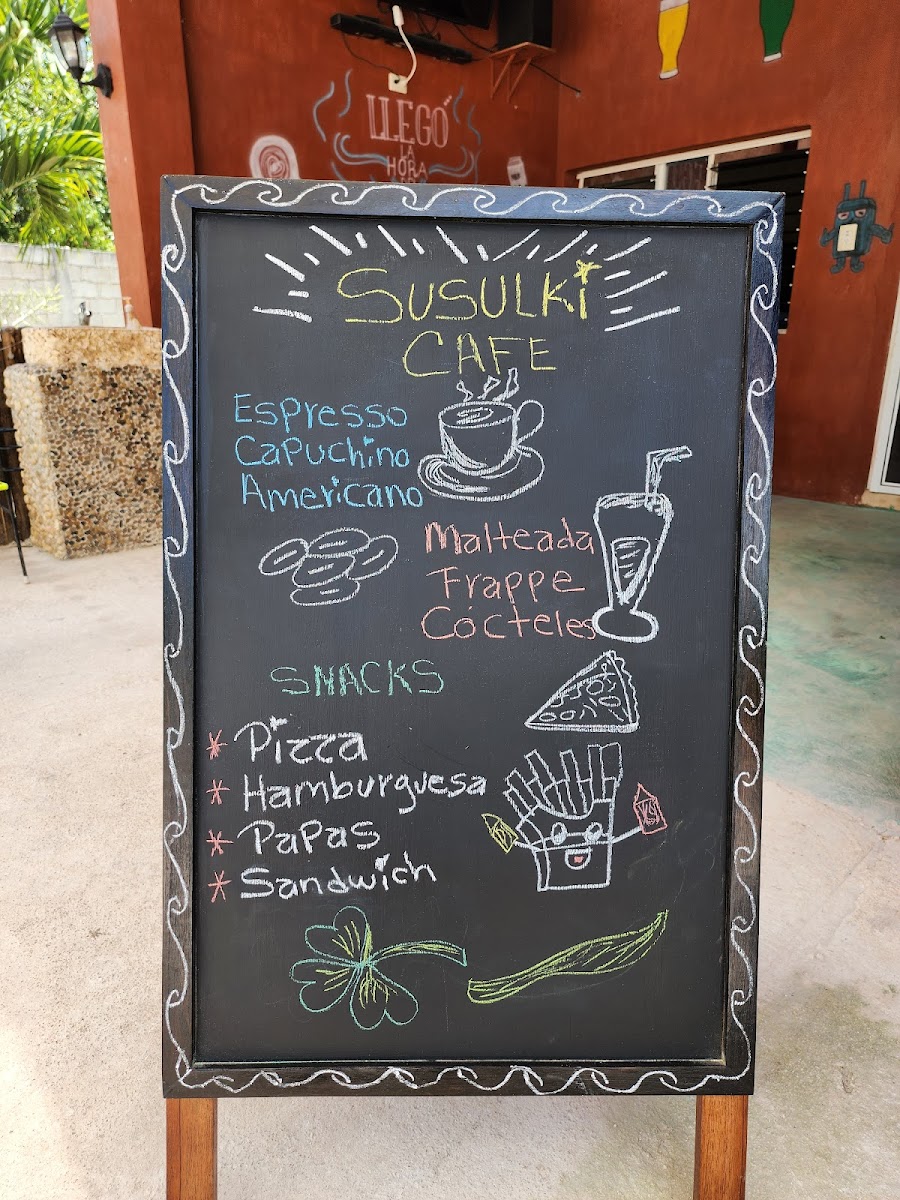 LLEGÓ
LA
HORA
SUSULKi
CAFE
Espresso
Capuchino
Americano
Malteada
Frappe
Cócteles
SNACKS
* Pizza
* Hamburguesa
* Papas
* Sandwich